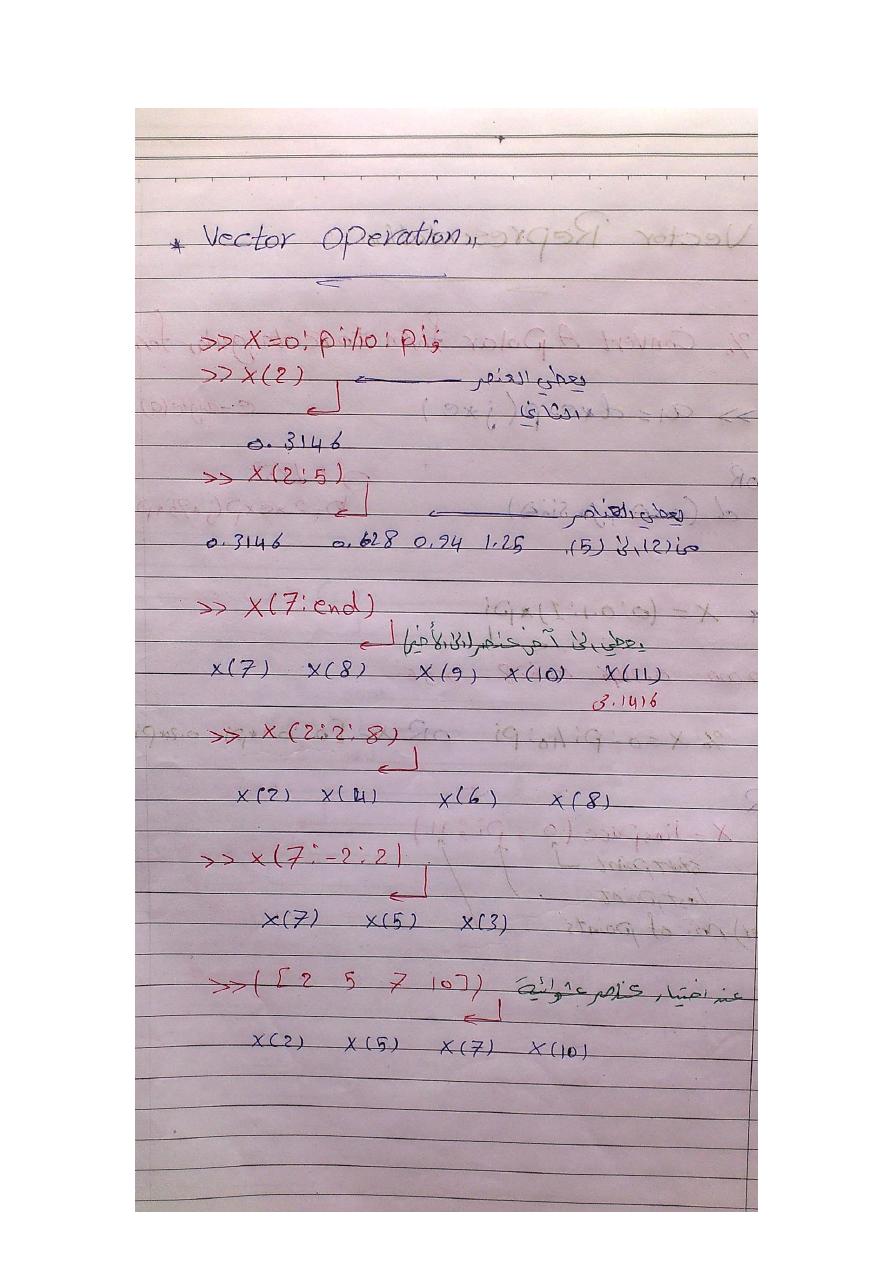 * Vector Operation,,
>> X=0:pi/10:pi;
>> X(2) يعطي العنصر
الثاني
0.3146
>> X(2:5)
يعطي العناصر
0.3146 0.628 0.94 1.25 من (2) الى (5)
>> X(7:end)
يعطي الى آخر عنصر
X(7) X(8) X(9) X(10) X(11)
3.1416
>> X(2:2:8)
X(2) X(4) X(6) X(8)
>> X(7:-2:2)
X(7) X(5) X(3)
>> ([2 5 7 10]) عند اختيار عناصر عشوائية
X(2) X(5) X(7) X(10)